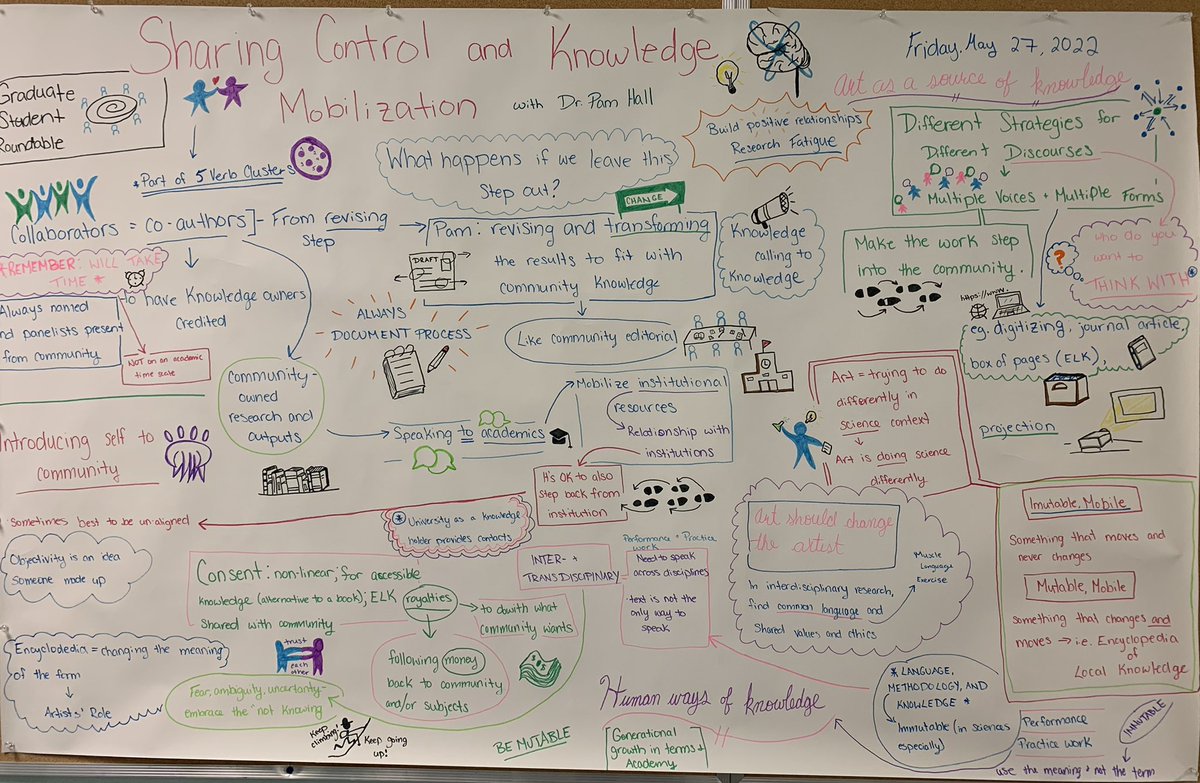 Sharing Control and Knowledge
Mobilization
with Dr. Pam Hall
Friday, May 27, 2022
Graduate
Student
Roundtable
*Part of 5 Verb Clusters
Collaborators = co-authors] - From revising
step
*REMEMBER: WILL TAKE
TIME *
Always named
and panelists present
from community
NOT on an academic
time scale
to have Knowledge owners
credited
Community-
owned
research and
outputs
What happens if we leave this
Step out?
CHANGE
Pam: revising and transforming
the results to fit with
community Knowledge
DRAFT
ALWAYS
DOCUMENT PROCESS
Like community editorial
Build positive relationships
Research Fatigue
Knowledge
calling to
Knowledge
Art as a source of knowledge
Different Strategies for
Different Discourses
Multiple Voices + Multiple Form's
Make the work step
into the community.
who do you
want to
THINK WITH
?
https://www.
eg. digitizing, journal article,
box of pages (ELK),
projection
Introducing self to
community
Speaking to academics
Mobilize institutional
resources
Relationship with
institutions
It's OK to also
step back from
institution
Art = trying to do
differently in
science context
Art is doing science
differently
sometimes best to be un-aligned
Objectivity is an idea
someone made up
University as a knowledge
holder provides contacts
Consent: non-linear; for accessible
knowledge (alternative to a book); ELK royalties
Shared with community
to do with what
community wants
following money
back to community
and/or subjects
INTER- +
TRANSDISCIPLINARY
Performance + Practice
work
Need to speak
across disciplines
text is not the
only way to
speak
Art should change
the artist
In interdisciplinary research,
find common language and
Shared values and ethics
Muscle
Language
Exercise
Imutable, Mobile
Something that moves and
never changes
Mutable, Mobile
something that changes and
moves → i.e. Encyclopedia
of
Local Knowledge
Encyclodedia = changing the meaning
of the form
Artists' Role
trust
each
other
Fear, ambiguity, uncertanty-
embrace the "not knowing
Keep
climbing!
Keep going
up!
BE MUTABLE
Human ways of knowledge
Generational
growth in terms +
Academy
* LANGUAGE,
METHODOLOGY, AND
KNOWLEDGE *
Immutable (in sciences
especially)
Performance
Practice work
IMMUTABLE
use the meaning + not the term